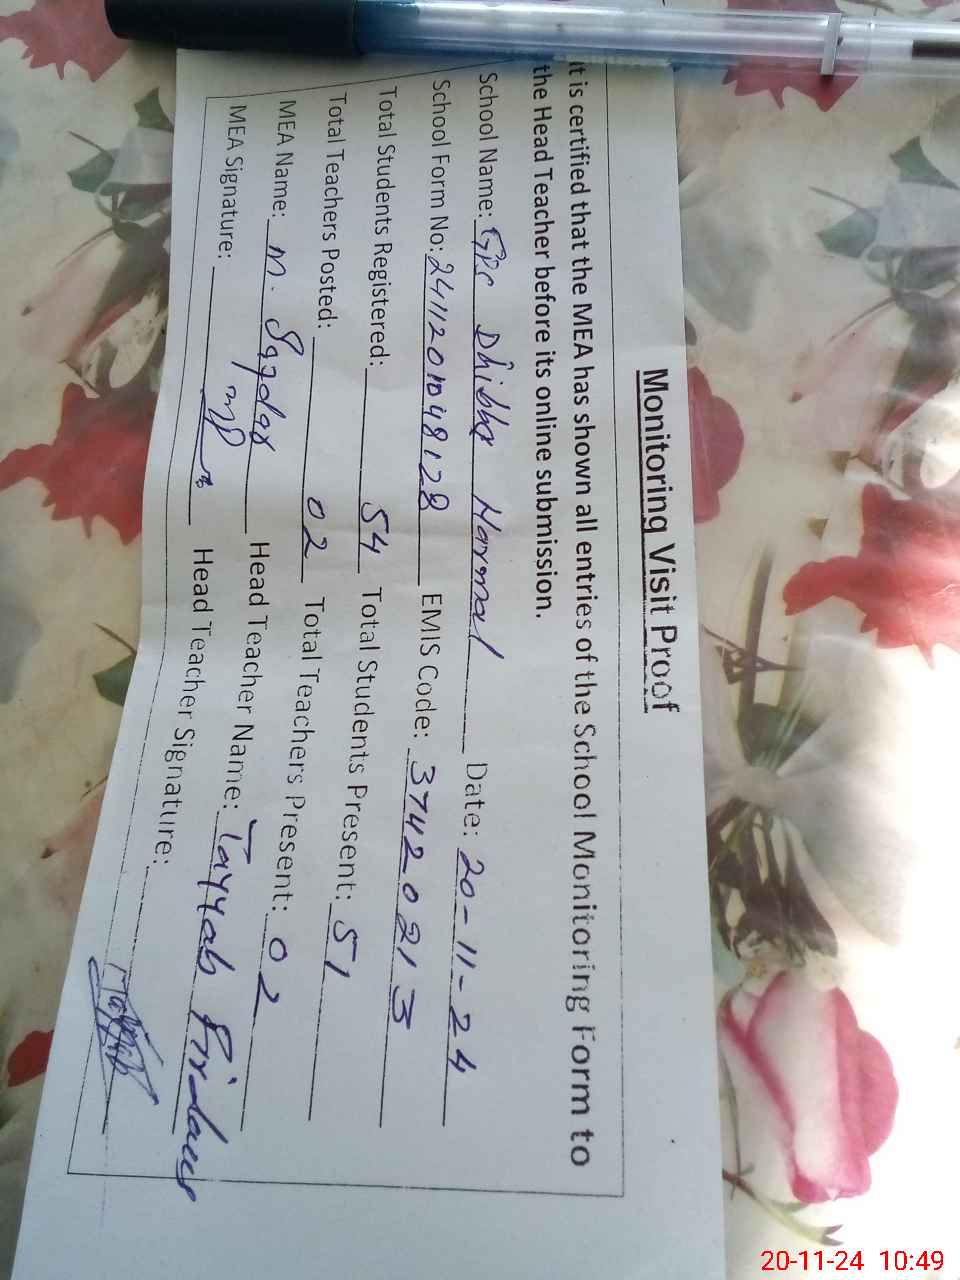 Monitoring Visit Proof
It is certified that the MEA has shown all entries of the School Monitoring Form to
the Head Teacher before its online submission.
School Name: GPS Dhibba Harmal Date: 20-11-24
School Form No: 2411201048128 EMIS Code: 37420213
Total Students Registered: 54 Total Students Present: 51
Total Teachers Posted: 02 Total Teachers Present: 02
MEA Name: M. Sajdar Head Teacher Name: Tayyab Firdaus
MEA Signature: Head Teacher Signature:
20-11-24 10:49